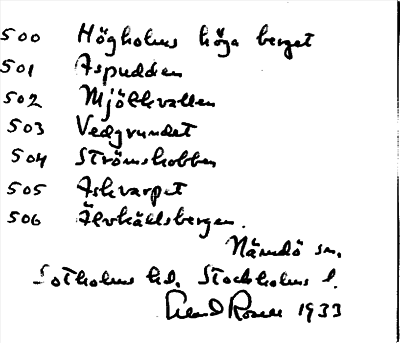 500 Högholms höga berget
501 Aspudden
502 Mjölkvallen
503 Vedgrundet
504 Strömskobben
505 Askvarpet
506 Älvkädsbergen.
Nämdö sn.
Sotholms hd. Stockholms l.
Rosell 1933